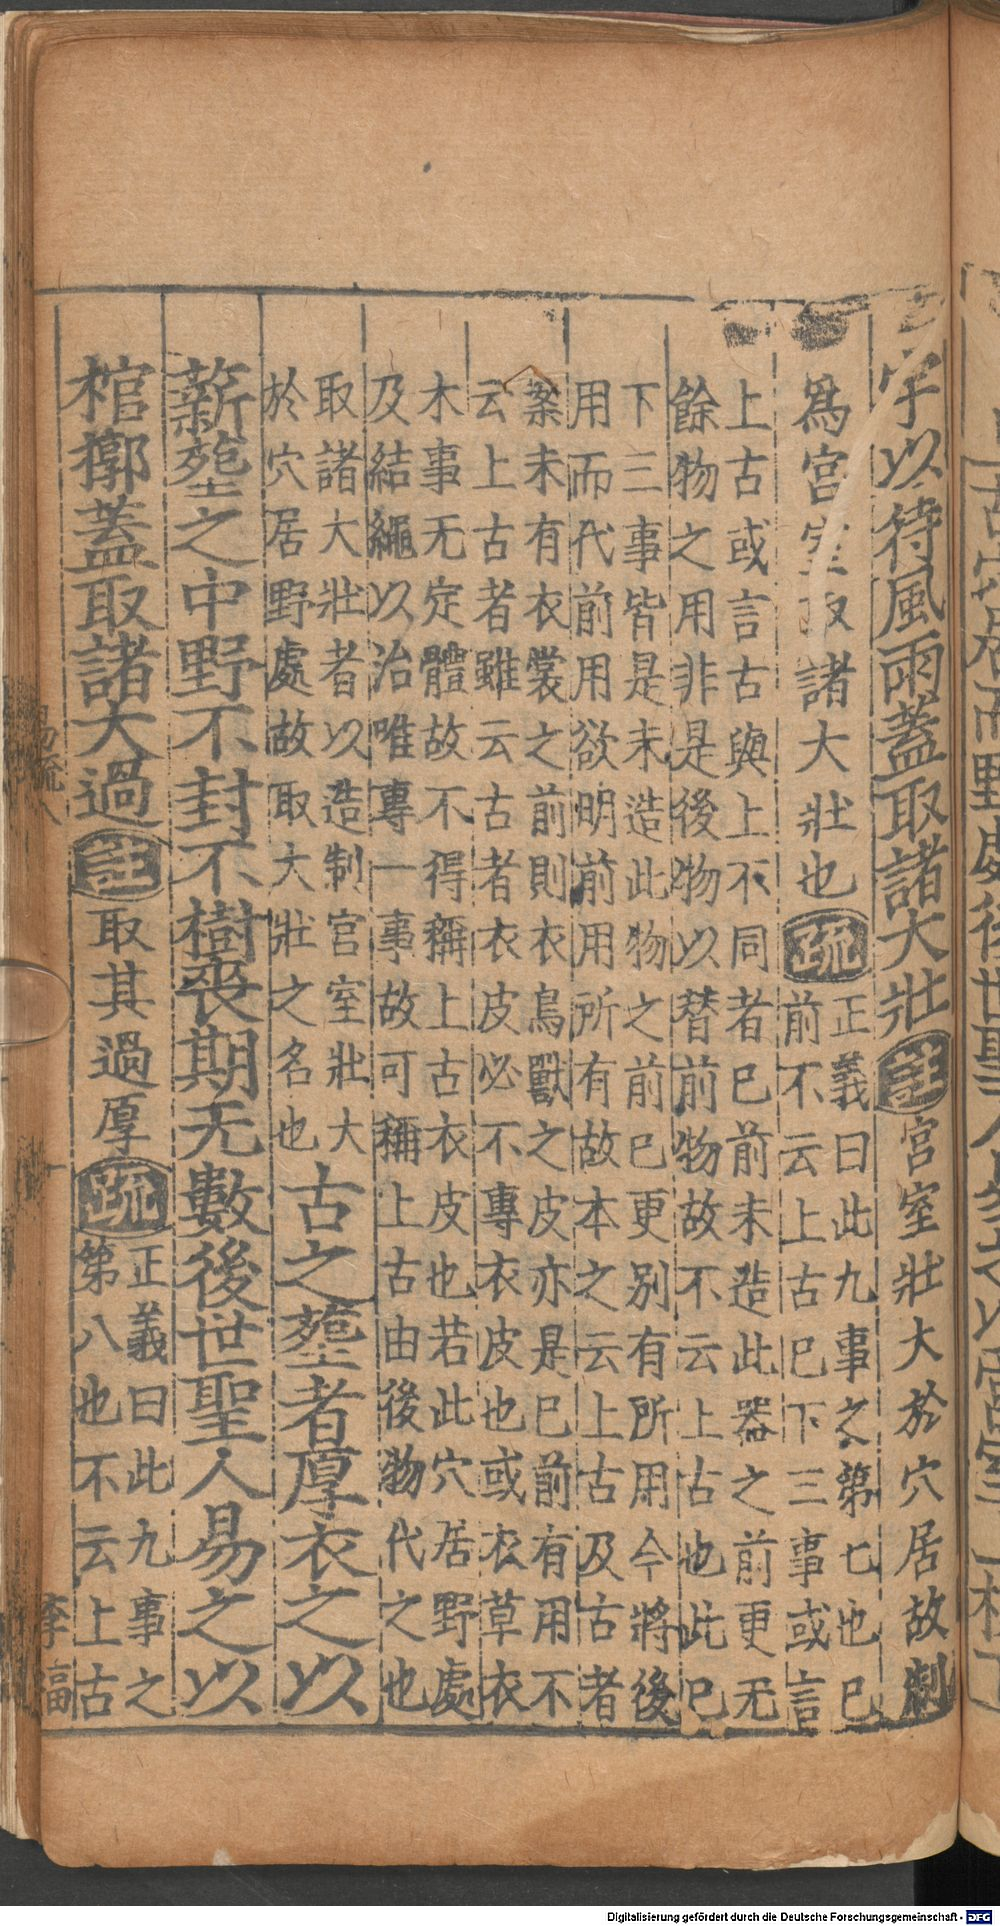 上古穴居而野處後世聖人易之以宮室上棟下
宇以待風雨蓋取諸大壯註宮室壯大於穴居故制
爲宮室取諸大壯也疏正義曰此九事之第七也巳
前不云上古巳下三事或言
上古或言古與上不同者巳前未造此器之前更无
餘物之用非是後物以替前物故不云上古也此巳
下三事皆是未造此物之前巳更別有所用今將後
用而代前用欲明前用所有故本之云上古及古者
案未有衣裳之前則衣鳥獸之皮亦是巳前有用不
云上古者雖云古者衣皮必不專衣皮也或衣草衣
木事无定體故不得稱上古衣皮也若此穴居野處
及結繩以治唯專一事故可稱上古由後物代之也
取諸大壯者以造制宮室壯大
於穴居野處故取大壯之名也
古之塟者厚衣之以
薪塟之中野不封不樹喪期无數後世聖人易之以
棺槨蓋取諸大過註取其過厚疏正義曰此九事之
第八也不云上古
易疏八
李福
Digitalisierung gefördert durch die Deutsche Forschungsgemeinschaft - DFG